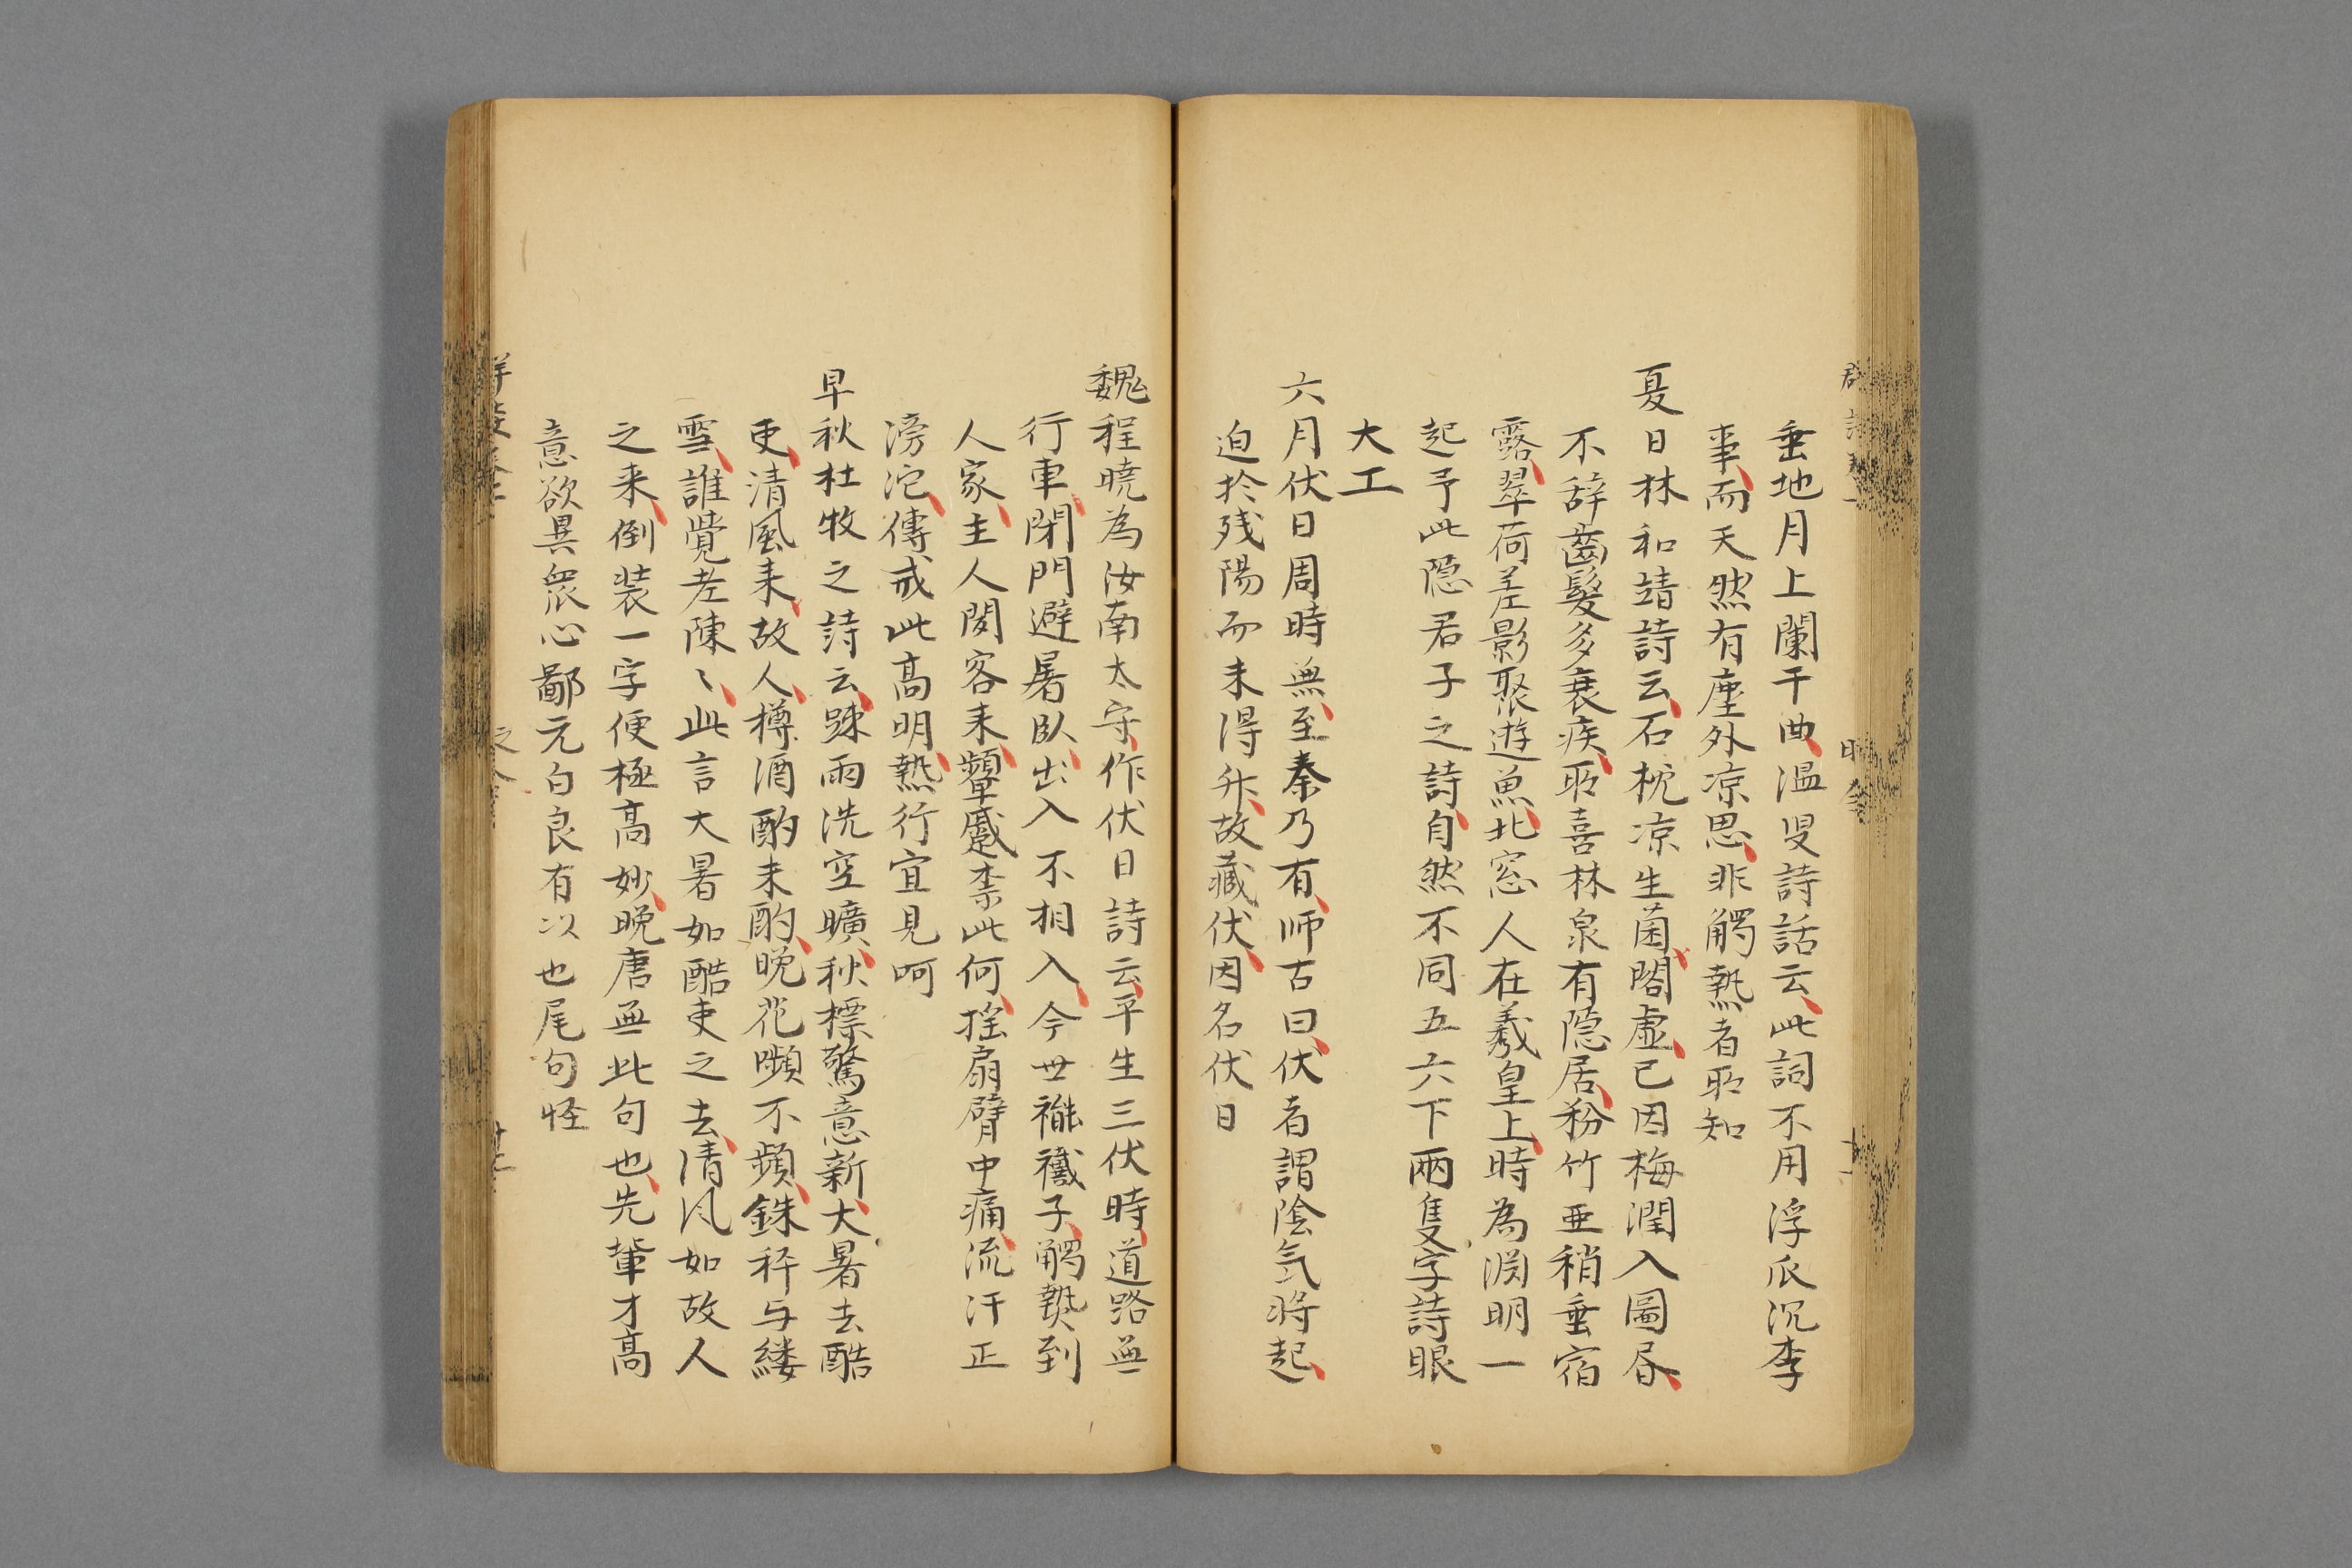 垂地月上闌干曲温叟詩話云此詞不用浮瓜沉李
事而天然有塵外凉思非觸熱者所知
夏日林和靖詩云石枕凉生菌閣虚已因梅潤入圖昬
不辞齒髮多衰疾所喜林泉有隠居粉竹亜稍垂宿
露翠荷差影聚遊魚北窓人在羲皇上時為渕明一
起予此隠君子之詩自然不同五六下兩隻字詩眼
大工
六月伏日周時無至秦乃有师古曰伏者謂陰気将起
迫於残陽而未得升故藏伏因名伏日
魏程曉為汝南太守作伏日詩云平生三伏時道路無
行車閉門避暑臥出入不相入今世褦襶子觸熱到
人家主人聞客来顰蹙柰此何揺扇臂中痛流汗正
滂沱傳戒此高明熱行宜見呵
早秋杜牧之詩云踈雨洗空曠秋標驚意新大暑去酷
吏清風来故人樽酒酌未酌晩花嚬不顰銖秤与縷
雪誰覺老陳〻此言大暑如酷吏之去清风如故人
之来倒装一字便極高妙晩唐無此句也先輩才高
意欲異衆心鄙元白良有以也尾句怪